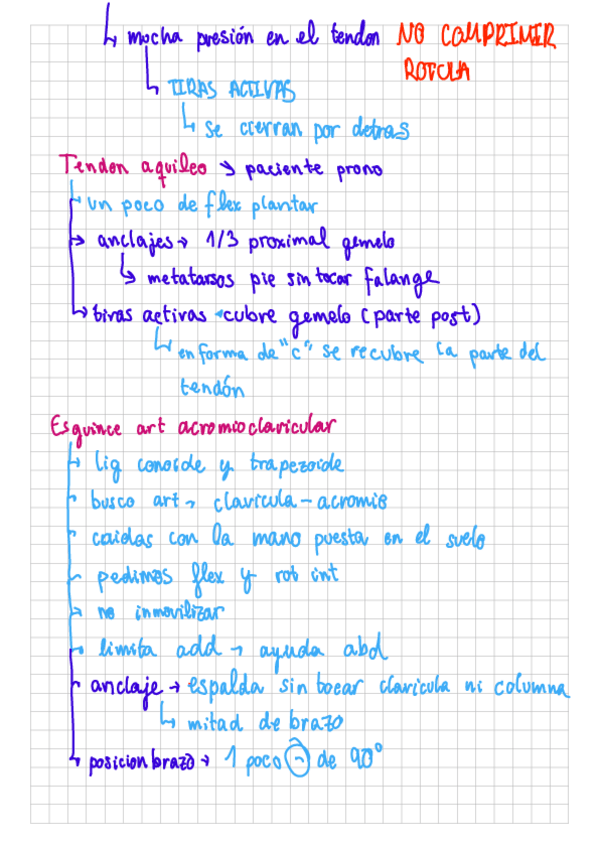 ↳ mucha presión en el tendon NO COMPRIMIR
ROTULA
↳ TIRAS ACTIVAS
↳ se cierran por detras
Tendon aquileo → paciente prono
→ un poco de flex plantar
→ anclajes → 1/3 proximal gemelo
↳ metatarsos pie sin tocar falange
↳ tiras activas → cubre gemelo (parte post)
↳ en forma de "c" se recubre la parte del
tendón
Esguince art acromioclavicular
→ lig conoide y trapezoide
→ busco art → clavicula - acromio
→ caidas con la mano puesta en el suelo
→ pedimos flex y rot int
→ no inmovilizar
→ limita add → ayuda abd
→ anclaje → espalda sin tocar clavicula ni columna
↳ mitad de brazo
↳ posicion brazo → 1 poco (-) de 90°